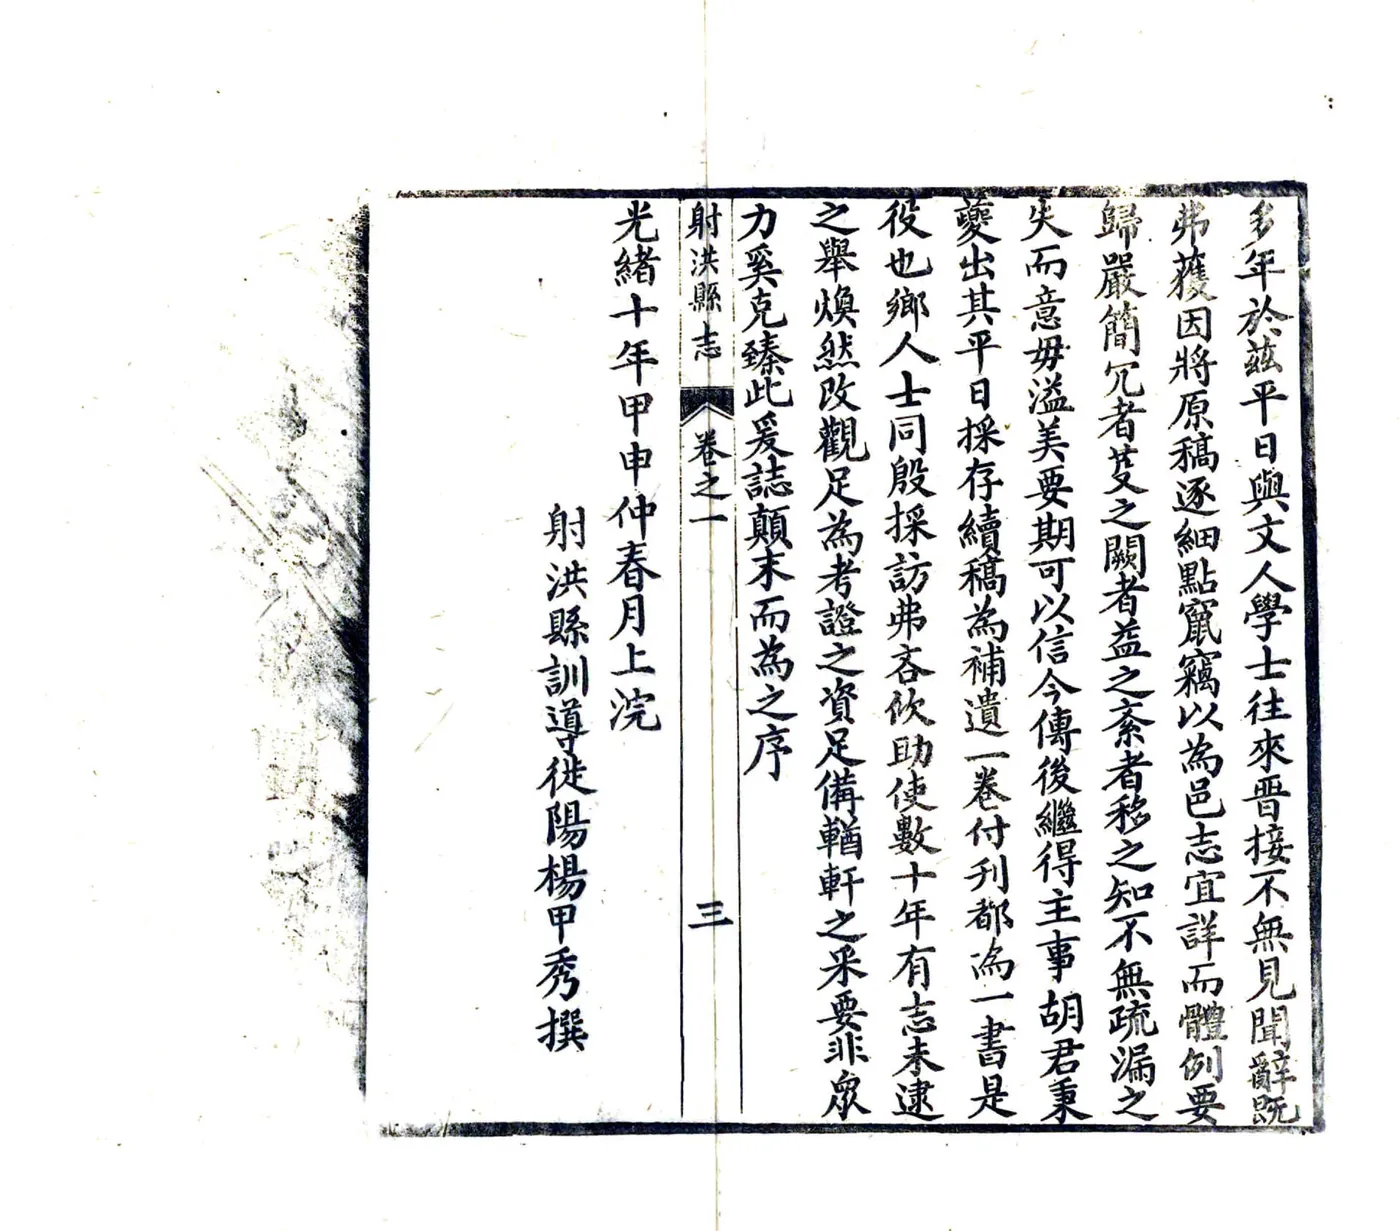 多年於茲平日與文人學士往來晋接不無見聞辭既
弗獲因將原稿逐細點竄竊以為邑志宜詳而體例要
歸嚴簡冗者芟之闕者益之紊者移之知不無疏漏之
失而意毋溢美要期可以信今傳後繼得主事胡君秉
夔出其平日採存續稿為補遺一卷付刊都為一書是
役也鄉人士同殷採訪弗吝佽助使數十年有志未逮
之舉煥然改觀足為考證之資足備輶軒之采要非眾
力奚克臻此爰誌顛末而為之序
射洪縣志
卷之一
三
光緒十年甲申仲春月上浣
射洪縣訓導徙陽楊甲秀撰